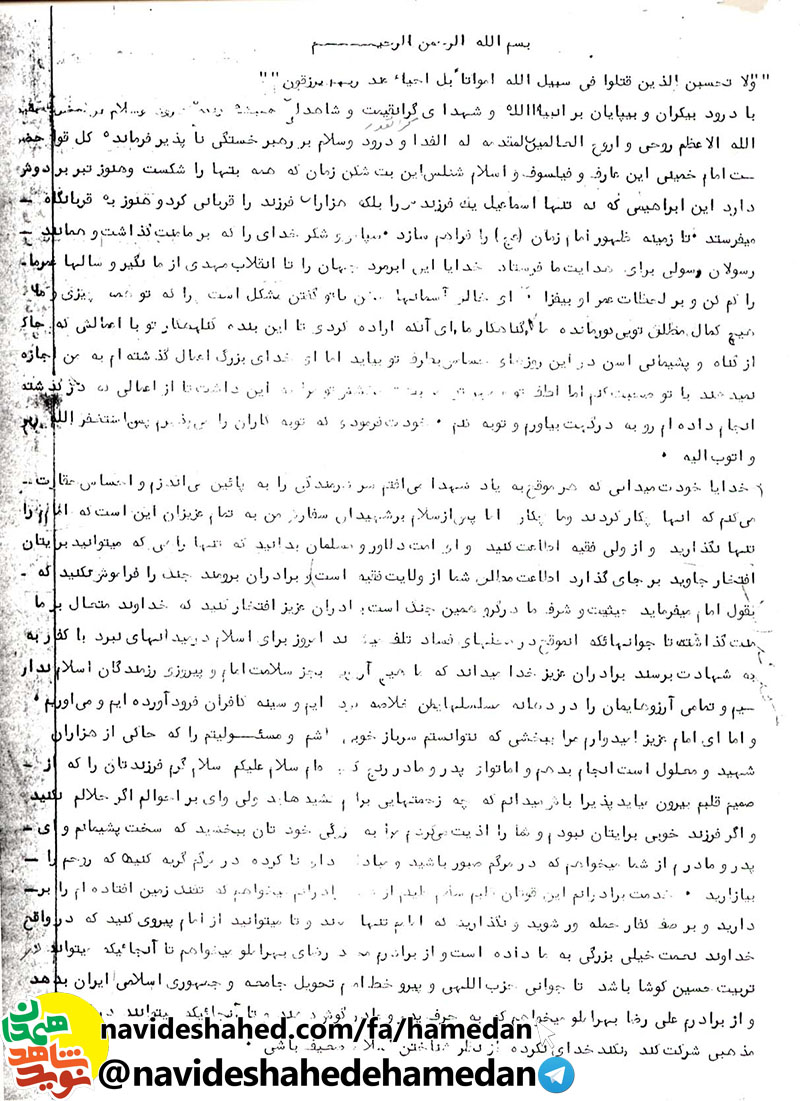 بسم الله الرحمن الرحیـــــــم
"ولا تحسبن الذین قتلوا فی سبیل الله امواتا بل احیاء عند ربهم یرزقون"
با درود بیکران و بیپایان بر انبیاءالله و شهدای گرانقیمت و شاهدان همیشه زنده درود وسلام بر
الله الاعظم روحی و ارواح العالمین لمقدمه له الفدا و درود وسلام بر رهبر خستگی نا پذیر فرمانده کل قوا حضر
ــت امام خمینی این عارف و فیلسوف و اسلام شناس این بت شکن زمان که همه بتها را شکست وهنوز تبر بر دوش
دارد این ابراهیمی که نه تنها اسماعیل یک فرزندش را بلکه هزاران فرزند را قربانی کرد و هنوز به قربانگاه ــ
میفرستد تا زمینه ظهور امام زمان (عج) را فراهم سازد سپاس و شکر خدای را که بر ما منت گذاشت و همانند ــ
رسولان رسولی برای هدایت ما فرستاد خدایا این ابرمرد جهان را تا انقلاب مهدی از ما نگیر و سالها عمرما
را کم کن و بر لحظات عمر او بیفزا ای خالق آسمانها سخن با تو گفتن مشکل است را که تو همه چیزی و ما
هیچ کمال مطلق تویی و درمانده ما گناهکار ما ای آنکه اراده کردی تا این بنده گنهکار تو با اعمالش که حاکی
از گناه و پشیمانی است در این روزهای حساس بطرف تو بیاید اما ای خدای بزرگ اعمال گذشته ام به من اجازه
نمیدهند با تو صحبت کنم اما لطف تو مرا به این داشت تا از اعمالی که در گذشته
انجام داده ام رو به درگهت بیاورم و توبه کنم خودت فرمودی که توبه کاران را می‌پذیرم پس استغفر الله ربی
و اتوب الیه
خدایا خودت میدانی که هر موقع به یاد شهدا می‌افتم سر شرمندگی را به پائین می‌اندازم و احساس حقارت ــ
می‌کنم که آنها چکار کردند وما چکار اما پس از سلام بر شهیدان سفارش من به تمام عزیزان این است که امام را
تنها نگذارید و از ولی فقیه اطاعت کنید و ای امت دلاور و مسلمان بدانید که تنها راهی که میتوانید برایتان
افتخار جاوید بر جای گذارد اطاعت مطلق شما از ولایت فقیه است و برادران برومند جنگ را فراموش نکنید که ــ
بقول امام میفرماید حیثیت و شرف ما در گرو همین جنگ است برادران عزیز افتخار کنید که خداوند متعال بر ما
منت گذاشته تا جوانهائکه آنموقع در محلهای فساد تلف میشدند امروز برای اسلام در میدانهای نبرد با کفار به
شهادت برسند برادران عزیز خدا میداند که ما هیچ آرزویی بجز سلامت امام و پیروزی رزمندگان اسلام ندار
ــیم و تمامی آرزوهایمان را در دهانه مسلسلهایمان خلاصه کرده ایم و سینه کافران فرود آورده ایم و می‌اوریم
و اما ای امام عزیز امیدوارم مرا ببخشی که نتوانستم سرباز خوبی باشم و مسئـــولیتم را که حاکی از هزاران
شهید و معلول است انجام بدهم و اما توای پدر و مادر رنج کشیده ام سلام علیکم سلام گرم فرزندتان را که از ــ
صمیم قلبم بیرون میاید پذیرا باش میدانم که چه زحمتهایی برایم کشیدهاید ولی وای بر احوالم اگر حلالم نکنید
و اگر فرزند خوبی برایتان نبودم و شما را اذیت میکردم مرا به بزرگی خودتان ببخشید که سخت پشیمانم و ای ــ
پدر و مادرم از شما میخواهم که در مرگم صبور باشید و مبادا خدای نا کرده در مرگم گریه کنیدها که روحم را ــ
بیازارید خدمت برادرانم این قوتان قلبم سلام از برادرانم میخواهم که تفنگ زمین افتاده ام را بر ــ
دارید و بر صف کفار حمله ور شوید و نگذارید که امام تنها بماند و تا میتوانید از امام پیروی کنید که در واقع
خداوند نعمت خیلی بزرگی به ما داده است و از برادرم رضای بهراملو میخواهم تا آنجائیکه میتواند در
تربیت حسین کوشا باشد تا جوانی حزب اللهی و پیرو خط امام تحویل جامعه و جمهوری اسلامی ایران بدهد
و از برادرم علی رضا بهراملو میخواهم که به حرف پدر و مادر گوش دهد و تا آنجائیکه میتواند در
مذهبی شرکت کند و نکند خدای نکرده از نظر شناختن اسلام ضعیف باشی
نوید شاهد همدان
navideshahed.com/fa/hamedan
@navideshahedehamedan